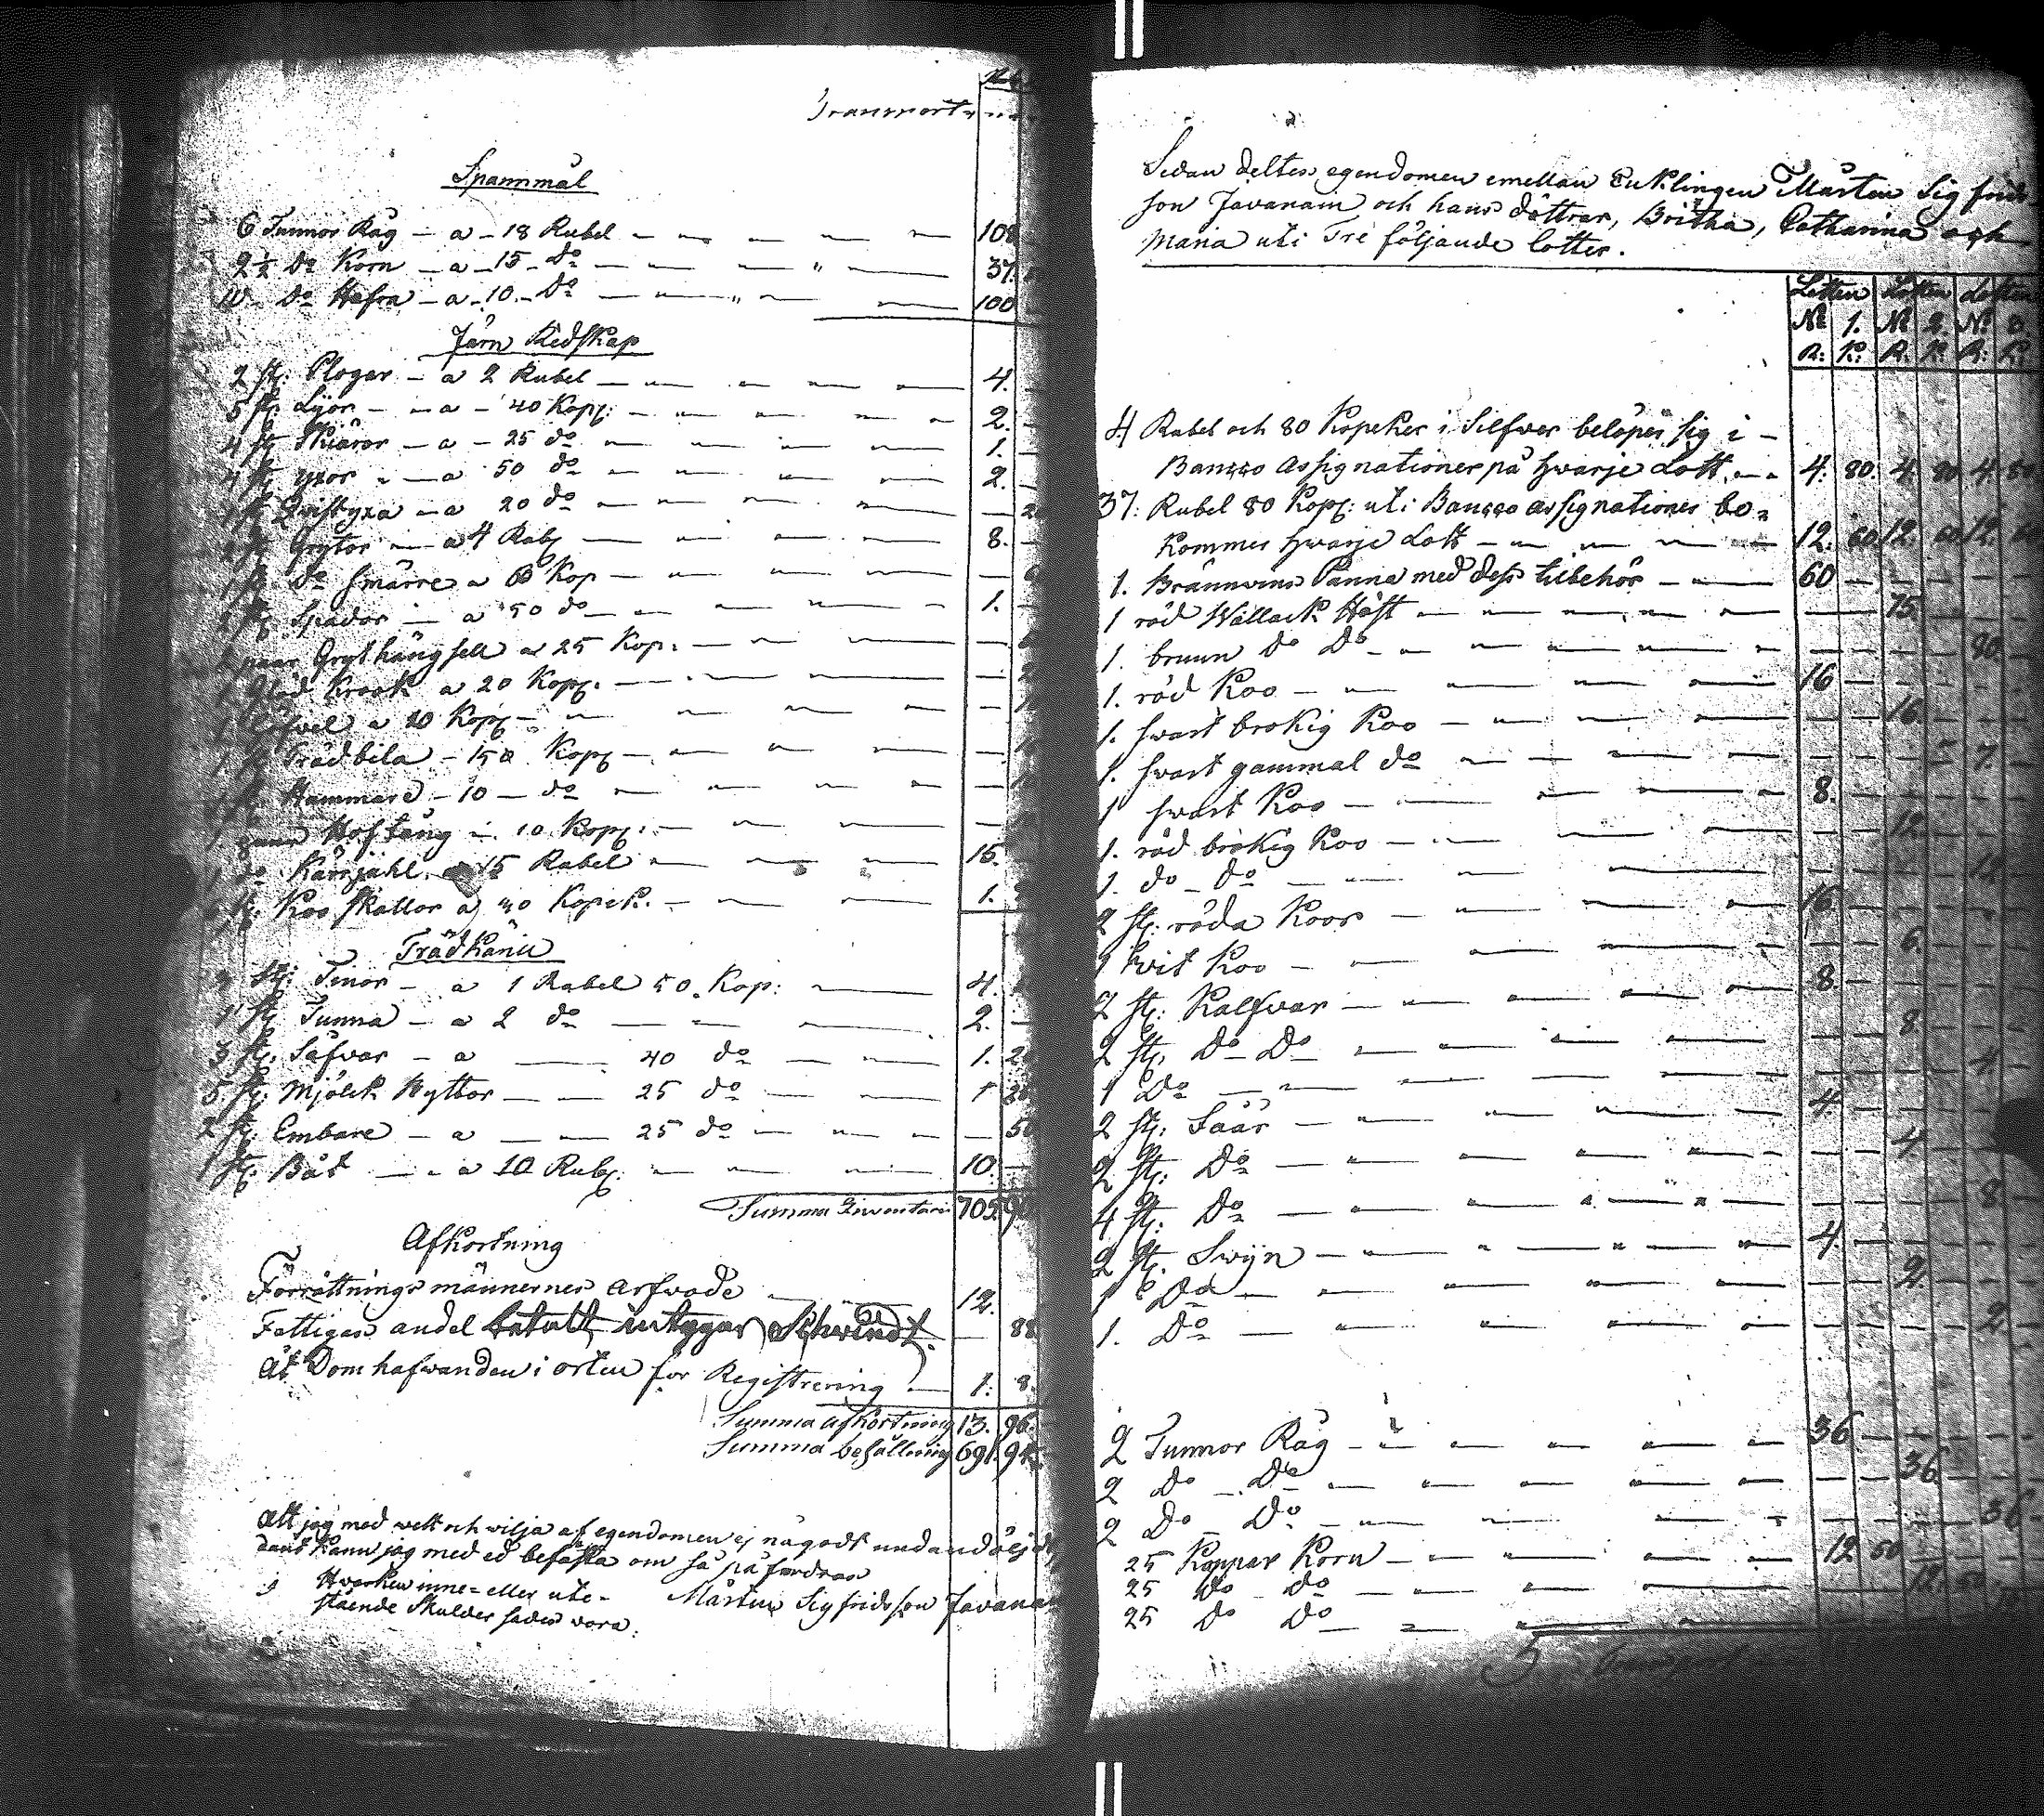 Transport
Spannmål
6 Tunnor Råg — a — 18 Rubel — 108
2½ Do Korn — a — 15 — Do — 37.
10 Do Hafra — a — 10 — Do — 100
Järn Redskap
2 st: Plogar — a 2 Rubel — 4.
5 st Lijor — a — 40 Kop: — 2.
4 st Skiäror — a — 25 do — 1.
4 st yxor — a 50 do — 2.
1 st Qvistyxa — a 20 do
2 st Grytor — a 4 Rub — 8.
1 st do smärre a Kop
2 st Spador — a 50 do — 1.
paar Grythängsell a 25 Kop:
1 Krook a 20 Kop:
1 a Kop
1 st Trädbila — 150 Kop
1 st Hammare — 10 — do
1 paar Hoftång — 10 Kop:
1 do a 15 Rubel — 15.
st: Koo skallor a Kopek. — 1.
Trädkäril
3 st: Tinor — a 1 Rubel 50 Kop: — 4.
1 st Tunna — a 2 do — 2.
3 st: Såfvar — a — 40 do — 1. 20
5 st: Mjölck Byttor — 25 do — 1 25
2 st: Embare — a — 25 do — 50
1 st: Båt — a 10 Rub: — 10.
Summa Inventari 705. 90
Afkortning
Förrättningsmännernes arfwode — 12.
Fattigas andel betalt intygar Schwindt. — 88
åt Domhafwanden i orten för Registrering — 1. 8.
Summa afkortning 13. 96.
Summa behållning 691. 94.
Att jag med wett och wilja af egendomen ej någodt undandöljdt
kann jag med ed befästa om så påfordras
Hwarken inne= eller ute-
stående skulder sades vara.
Mårten Sigfridsson Javanain
Sedan deltes egendomen emellan Enklingen Mårten Sigfrids
son Javanain och hans döttrar, Britha, Catharina och
Maria uti Tre följande lotter.
Lotten Lotten Lotten
No 1. No 2. No 3.
R: K: R. K. R: K:
4 Rubel och 80 Kopeker i Silfwer belöper sig i —
Banco Assignationer på hwarje Lott — 4. 80. 4. 80 4. 80
37. Rubel 80 Kop: uti Banco assignationer be=
kommer hwarje Lott — 12. 60 12. 60 12. 60
1. Brännwins Panna med dess tilbehör — 60
1 röd Wallack Häst — 75.
1. brunn do Do — 80
1. röd Koo — 16
1. swart brokig Koo — 16.
1. swart gammal do — 7.
1 swart Koo — 8.
1. röd brokig Koo — 12.
1. do — do — 12
2 st: röda Koor — 16
1 hvit Koo — 6.
2 st: Kalfwar — 8.
2 st. Do Do — 8.
1 Do — 4
2 st: Fåår — 4
2 st: Do — 4
4 st: Do — 8
2 st. Swijn — 4.
1 Do — 2.
1. Do — 2
2 Tunnor Råg — 36
2 Do — Do — 36
2 Do Do — 36
25 Kappar Korn — 12 50
25 Do — do — 12. 50
25 Do Do
5 Transport